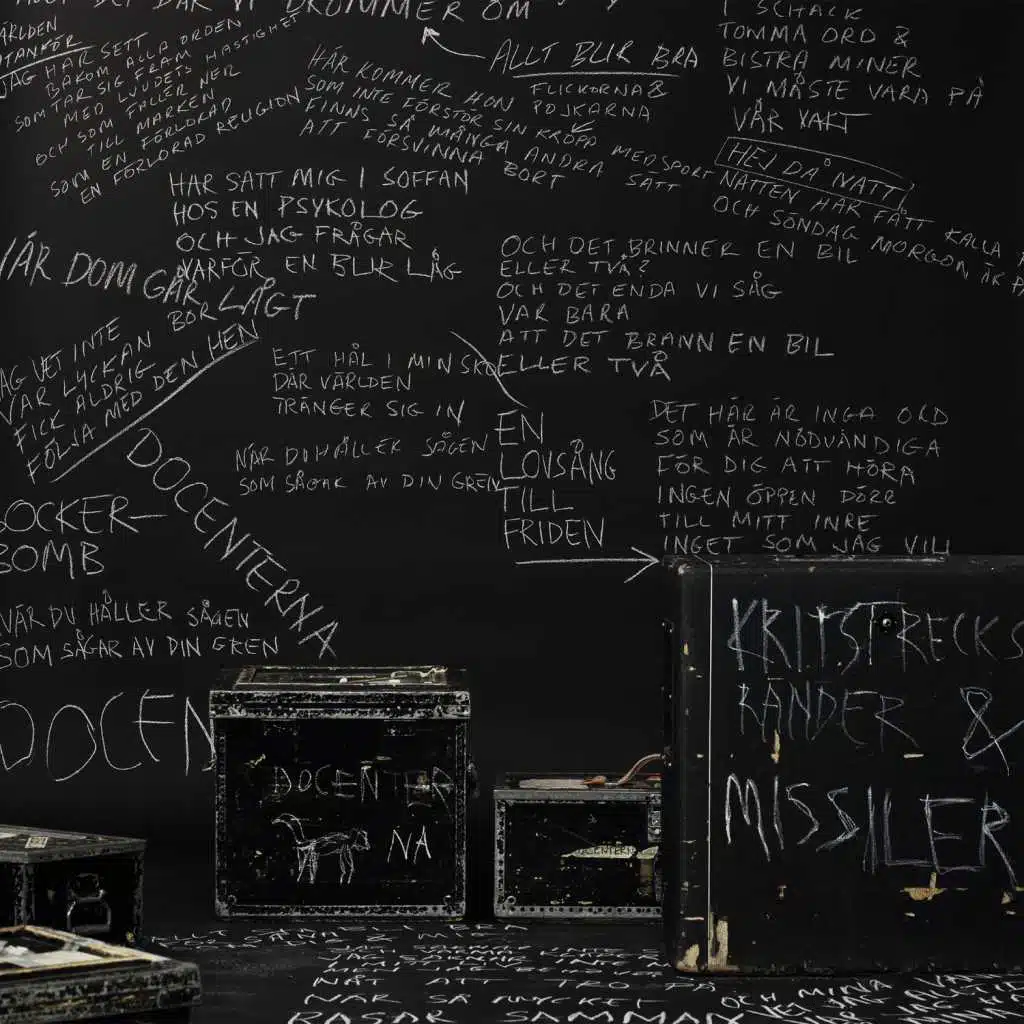 DET DÄR VI DRÖMMER OM
VÄRLDEN
UTANFÖR
JAG HAR SETT
BAKOM ALLA ORDEN
TAR SIG FRAM
SOM MED LJUDETS HASTIGHET
OCH SOM FALLER NER
TILL MARKEN
SOM EN FÖRLORAD
EN FÖRLORAD RELIGION
HÄR KOMMER HON
SOM INTE FÖRSTÖR SIN KROPP MED SPORT
FINNS SÅ MÅNGA ANDRA SÄTT
ATT FÖRSVINNA BORT
ALLT BLIR BRA
FLICKORNA &
POJKARNA
I SCHACK
TOMMA ORD &
BISTRA MINER
VI MÅSTE VARA PÅ
VÅR VAKT
HEJ DÅ NATT
NATTEN HAR FÅTT KALLA
OCH SÖNDAG MORGON ÄR
HAR SATT MIG I SOFFAN
HOS EN PSYKOLOG
OCH JAG FRÅGAR
VARFÖR EN BLIR LÅG
NÄR DOM GÅR LÅGT
JAG VET INTE
VAR LYCKAN BOR
FICK ALDRIG
FÖLJA MED DEN HEM
OCH DET BRINNER EN BIL
ELLER TVÅ?
OCH DET ENDA VI SÅG
VAR BARA
ATT DET BRANN EN BIL
ELLER TVÅ
ETT HÅL I MIN SKO
DÄR VÄRLDEN
TRÄNGER SIG IN
NÄR DU HÅLLER SÅGEN
SOM SÅGAR AV DIN GREN
EN
LOVSÅNG
TILL
FRIDEN
DET HÄR ÄR INGA ORD
SOM ÄR NÖDVÄNDIGA
FÖR DIG ATT HÖRA
INGEN ÖPPEN DÖRR
TILL MITT INRE
INGET SOM JAG VILL
SOCKER-
BOMB
DOCENTERNA
NÄR DU HÅLLER SÅGEN
SOM SÅGAR AV DIN GREN
DOCEN
DOCENTER
NA
KRITSTRECKS
RÄNDER &
MISSILER
NÅT ATT TRO PÅ
NÄR SÅ MYCKET
RASAR SAMMAN
OCH MINA
VET JAG